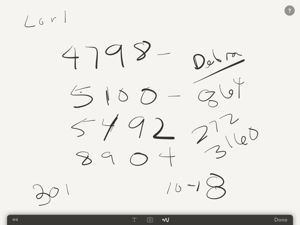 Lori
4798 -
Debra
5100 - 864
5492 272
8904 3160
301 10-18
Done